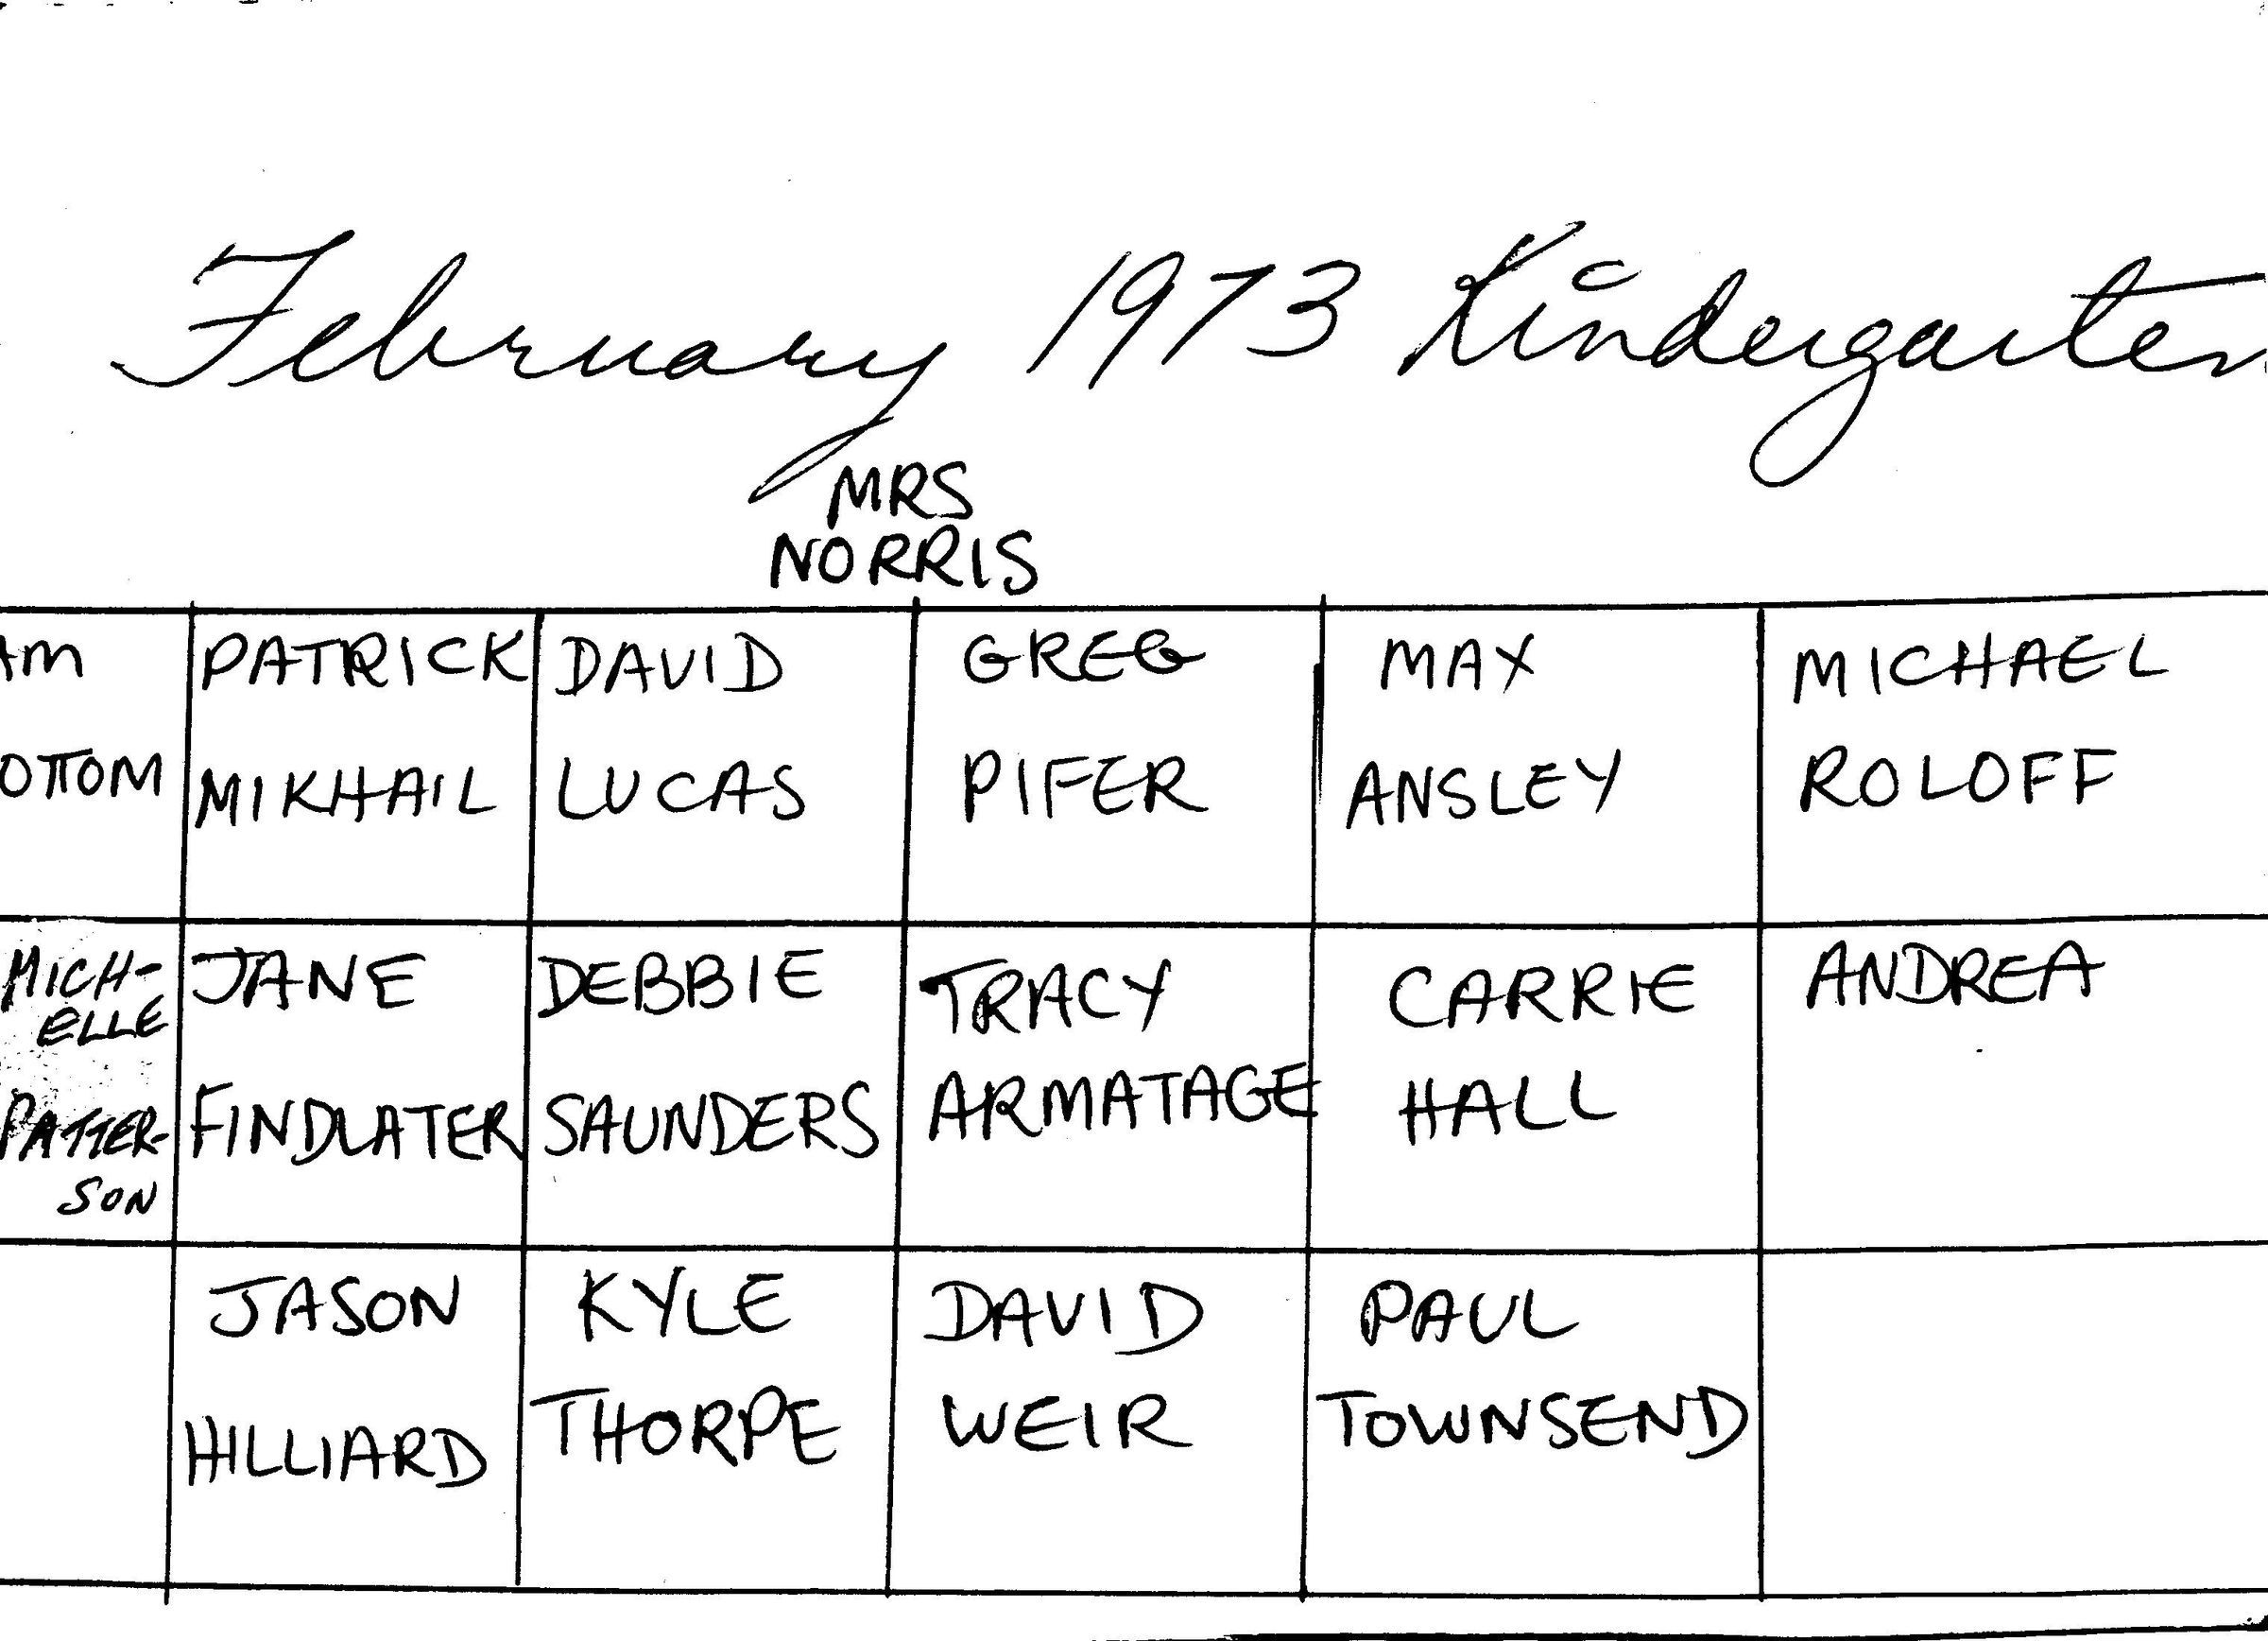 February 1973 Kindergarten
MRS
NORRIS
PATRICK DAVID GREG MAX MICHAEL
MIKHAIL LUCAS PIFER ANSLEY ROLOFF
MICH- JANE DEBBIE TRACY CARRIE ANDREA
ELLE
PATTER- FINDLATER SAUNDERS ARMATAGE HALL
SON
JASON KYLE DAVID PAUL
HILLIARD THORPE WEIR TOWNSEND